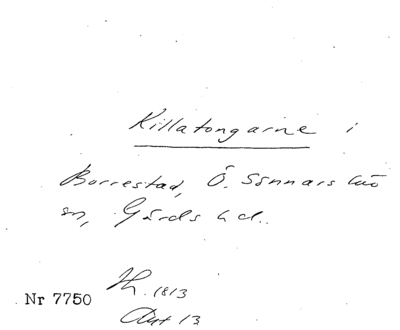 Killatongarne i
Borrestad, Ö. Sönnarslöv
sn, Gärds hd.
Nr 7750
1813
13